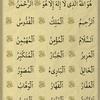 هُوَ اللَّهُ الَّذِي لَا إِلَهَ إِلَّا هُوَ الرَّحْمَٰنُ
الرَّحِيمُ الْمَلِكُ الْقُدُّوسُ
السَّلَامُ الْمُؤْمِنُ الْمُهَيْمِنُ
الْعَزِيزُ الْجَبَّارُ الْمُتَكَبِّرُ
الْخَالِقُ الْبَارِئُ الْمُصَوِّرُ
الْغَفَّارُ الْقَهَّارُ